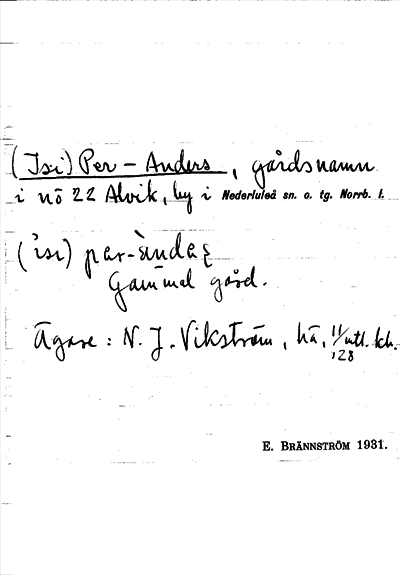 (Isi) Per-Anders, gårdsnamn
i nö 22 Alvik, by i Nederluleå sn. o. tg. Norrb. l.
(isi) par-
Gammal gård.
Ägare: N. J. Vikström, hä, 11/128 mtl. kh.
E. BRÄNNSTRÖM 1931.